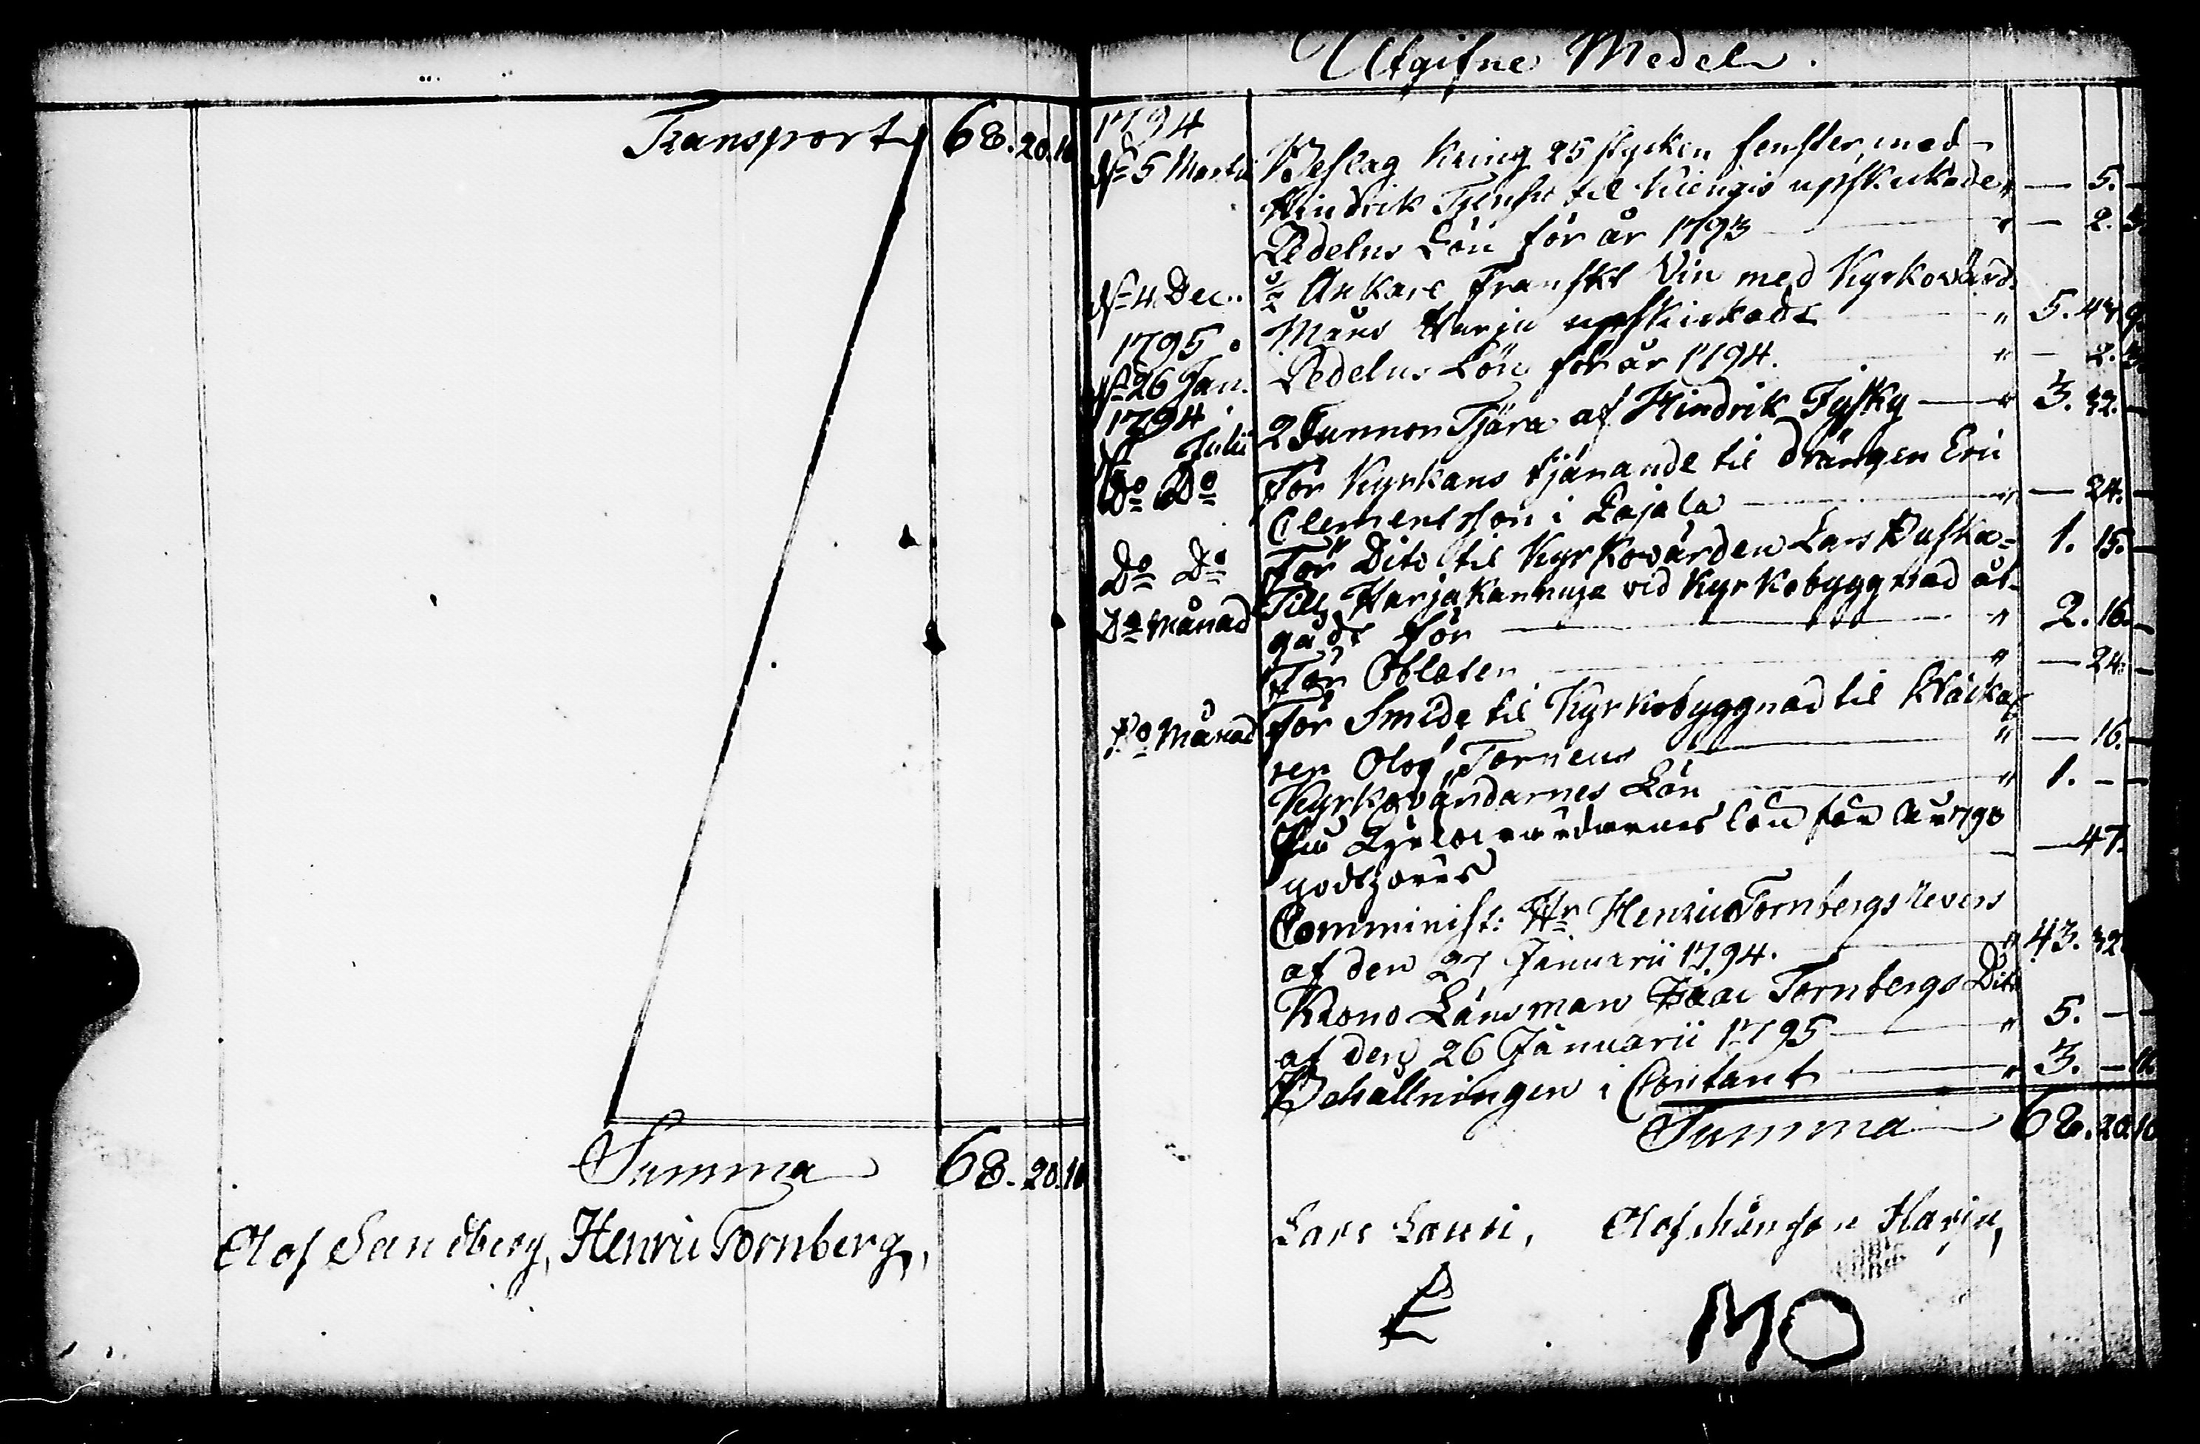 Transport 68. 20. 10
Summa 68. 20. 10
Olof Sandberg, Henric Tornberg,
Utgifne Medel.
1794
d. 5 Martii Beslag kring 25 stycken fenster, med
Hindrik til Kiengis upskickade " — 5. —
Pedelns Lön för år 1793 " — 2.
d. 4. Dec. ½ Ankare Franskt Vin med Kyrkovärd.
Måns Harju upskickade " 5. 43. 9
1795
d. 26 Jan. Pedelns Lön för år 1794. " — 2.
1794
Julii 2 Tunnor Tjära af Hindrik Tysky " 3. 32. —
Do Do För Kyrkans tjärande til Drängen Eric
Clementsson i Pajala " — 24. —
Do Do För Dito til Kyrkovärden Lars 1. 15. —
Do Månad Till Harjakannuja vid Kyrkobyggnad åt-
gådt för " 2. 16. —
För Oblater " — 24. —
Do Månad För Smide til Kyrkobyggnad til Kläcka
ren Olof Torneus " — 16. —
Kyrkovärdarnes Lön " 1. — —
lön för
godtgöres — 47.
Comminist: Hr Henric Tornbergs Revers
af den 27 Januarii 1794. " 43. 32
Krono Länsman Isaac Tornbergs Dito
af den 26 Januarii 1795 " 5. — —
Behållningen i Contant " 3. — 11.
Summa 68. 20. 10
Lars Lauri, Olof Månsson Harju,
MO